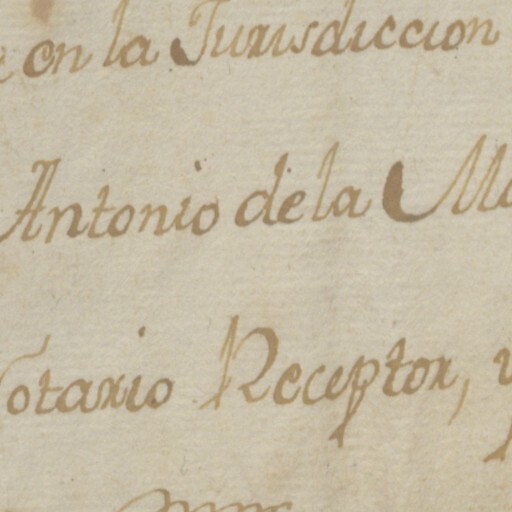 en la Jurisdiccion
Antonio de la
Notario Receptor, y